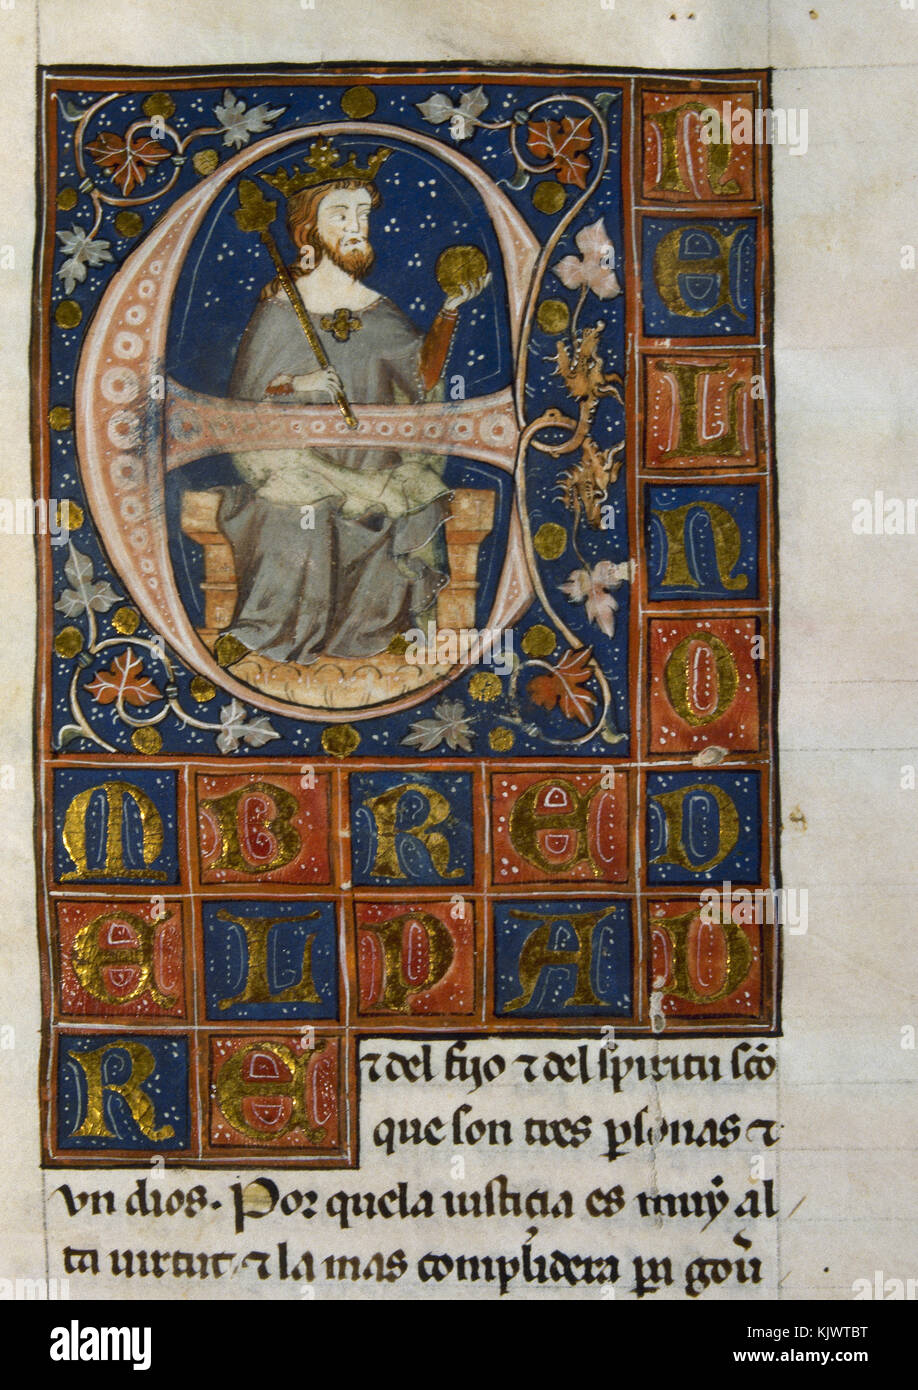 E
N
E
L
N
O
M B R E D
E L P A D
R E
⁊ del fijo ⁊ del spiritu sc̃o
que son tres ꝑsonas ⁊
vn dios. Por que la iusticia es muy al
ta virtut ⁊ la mas complidera pa gou̾
alamy
Image ID: KJWTBT
www.alamy.com